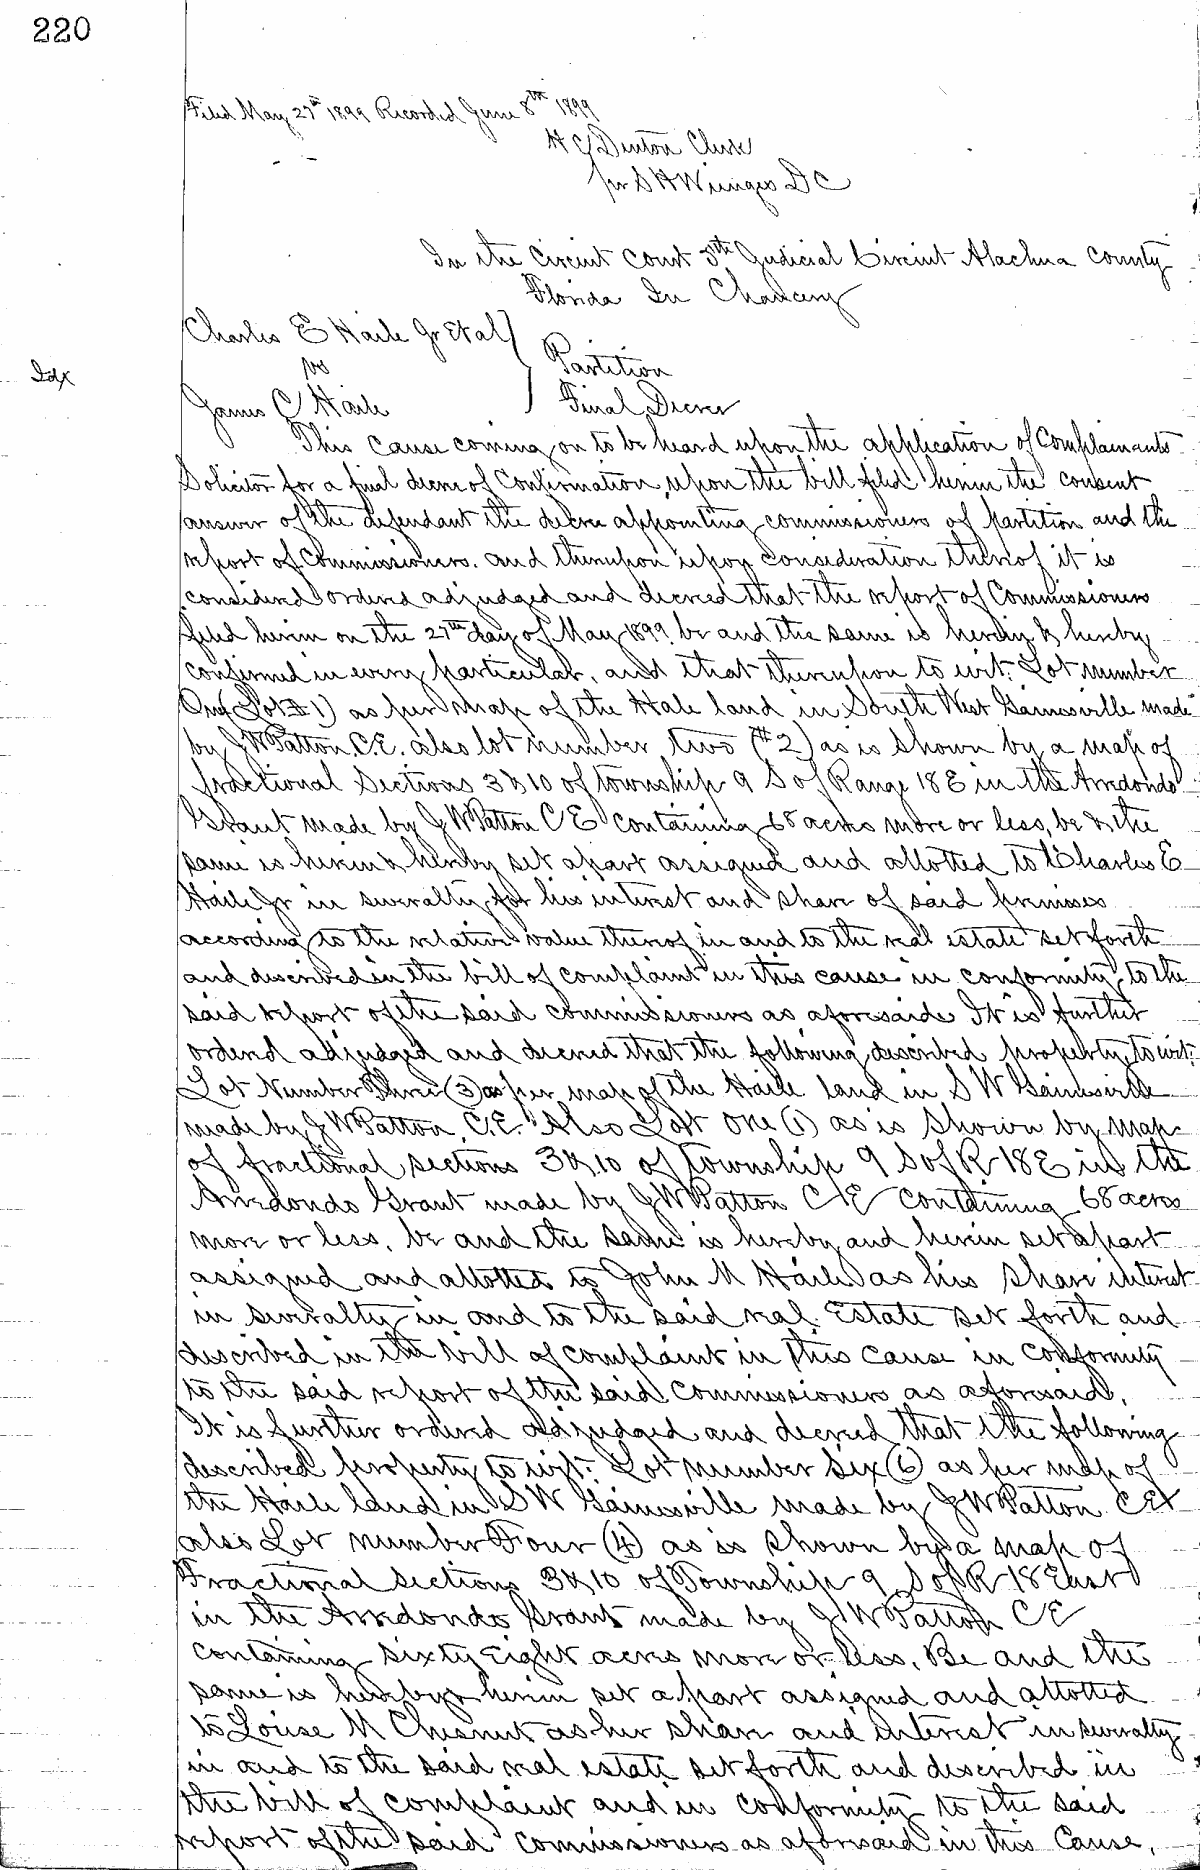 220
Filed May 27th 1899 Recorded June 8th 1899
H C Denton Clerk
per S H Wienges D C
In the Circuit Court 5th Judicial Circuit Alachua County
Florida In Chancery
Charles E Haile Jr Et al
vs
Partition
Idx
James C Haile
Final Decree
This Cause coming on to be heard upon the application of Complainants
Solicitor for a final decree of Confirmation, upon the bill filed herein the consent
answer of the defendant the decree appointing commissioners of partition and the
report of Commissioners. and thereupon upon consideration thereof it is
considered ordered adjudged and decreed that the report of Commissioners
filed herein on the 27th day of May 1899 be and the same is hereby & hereby
confirmed in every particular, and that thereupon to wit: Lot number
One (Lot #1) as per map of the Hale land in South West Gainesville made
by J W Patton, C.E. also lot number two (#2) as is shown by a map of
fractional Sections 3 & 10 of township 9 S of Range 18 E in the Arredondo
Grant made by J W Patton C E containing 68 acres more or less, be & the
same is herein & hereby set apart assigned and allotted to Charles E
Haile Jr in severalty, for his interest and share of said premises
according to the relative value thereof in and to the real estate set forth
and described in the bill of complaint in this cause in conformity to the
said report of the said commissioners as aforesaid. It is further
ordered adjudged and decreed that the following described property, to wit:
Lot Number Three (3) as per map of the Haile land in S W Gainesville
made by J W Patton, C.E. Also Lot one (1) as is shown by map
of fractional sections 3 & 10 of township 9 S of R 18 E in the
Arredondo Grant made by J W Patton C E containing 68 acres
more or less, be and the same is hereby and herein set apart
assigned and allotted to John M Haile as his share interest
in severalty in and to the said real Estate set forth and
described in the bill of complaint in this cause in conformity
to the said report of the said Commissioners as aforesaid,
It is further ordered adjudged and decreed that the following
described property to wit: Lot number Six (6) as per map of
the Haile land in S W Gainesville made by J W Patton C E &
also Lot number Four (4) as is shown by a map of
Fractional sections 3 & 10 of Township 9 S of R 18 East
in the Arredondo Grant made by J W Patton C E
containing sixty Eight acres more or less, Be and the
same is hereby & herein set apart assigned and allotted
to Louise M Chesnut as her share and interest in severalty
in and to the said real estate set forth and described in
the bill of complaint and in conformity to the said
report of the said commissioners as aforesaid in this Cause,